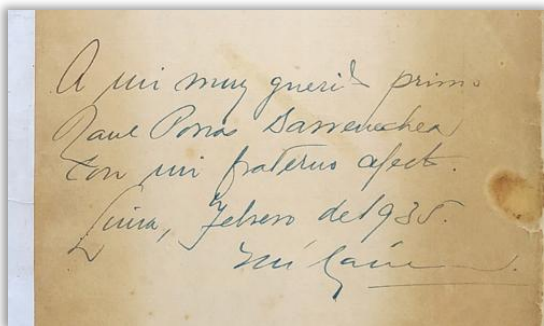 A mi muy querido primo
Raul Porras Barrenechea
con mi fraterno afecto.
Lima, Febrero de 1935.